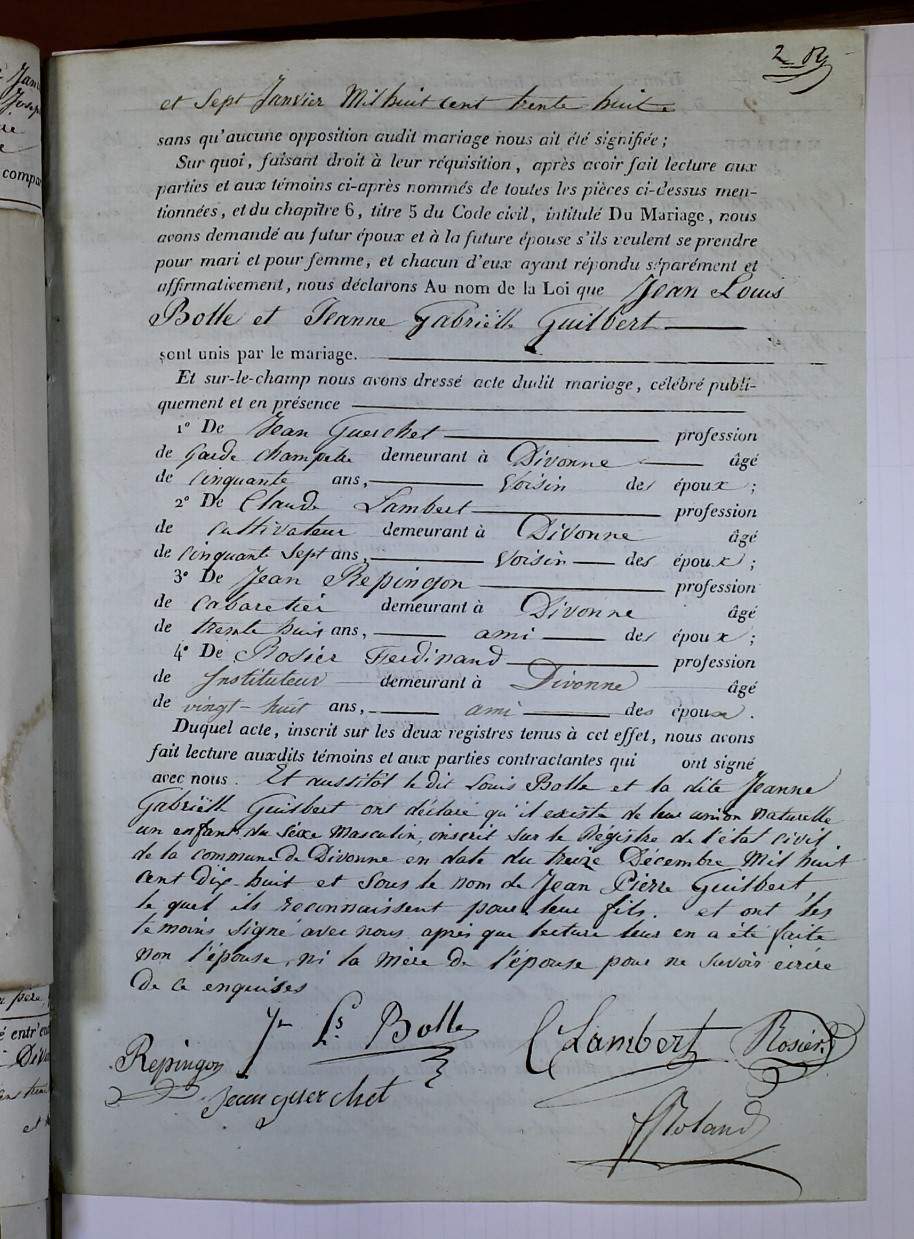 et Sept Janvier Mil huit cent trente huit.
sans qu'aucune opposition audit mariage nous ait été signifiée ;
Sur quoi, faisant droit à leur réquisition, après avoir fait lecture aux
parties et aux témoins ci-après nommés de toutes les pièces ci-dessus men-
tionnées, et du chapitre 6, titre 5 du Code civil, intitulé Du Mariage, nous
avons demandé au futur époux et à la future épouse s'ils veulent se prendre
pour mari et pour femme, et chacun d'eux ayant répondu séparément et
affirmativement, nous déclarons Au nom de la Loi que Jean Louis
Bolle et Jeanne Gabriëlle Guilbert
sont unis par le mariage.
Et sur-le-champ nous avons dressé acte dudit mariage, célébré publi-
quement et en présence
1º De Jean Guerchet profession
de Garde Champetre demeurant à Divonne âgé
de Cinquante ans, Voisin des époux ;
2º De Claude Lambert profession
de Cultivateur demeurant à Divonne âgé
de Cinquant Sept ans, Voisin des époux ;
3º De Jean Repingon profession
de Cabaretier demeurant à Divonne âgé
de trente huit ans, ami des époux ;
4º De Rosier Ferdinand profession
de Instituteur demeurant à Divonne âgé
de vingt-huit ans, ami des époux.
Duquel acte, inscrit sur les deux registres tenus à cet effet, nous avons
fait lecture auxdits témoins et aux parties contractantes qui ont signé
avec nous. Et aussitôt le dit Louis Bolle et la dite Jeanne
Gabriëlle Guilbert ont déclaré qu'il existe de leur union naturelle
un enfant du Sexe Masculin, inscrit sur le Régistre de l'état civil
de la commune de Divonne en date du treize Décembre Mil huit
Cent Dix-huit et Sous le nom de Jean Pierre Guilbert
le quel ils reconnaissent pour leur fils. et ont les
temoins Signé avec nous après que lecture leur en a été faite
non l'épouse, ni la mère de l'épouse pour ne Savoir écrire
De ce enquises
Jn Ls Bolle
C Lambert
Rosier
Repingon
Jean guerchet
Roland